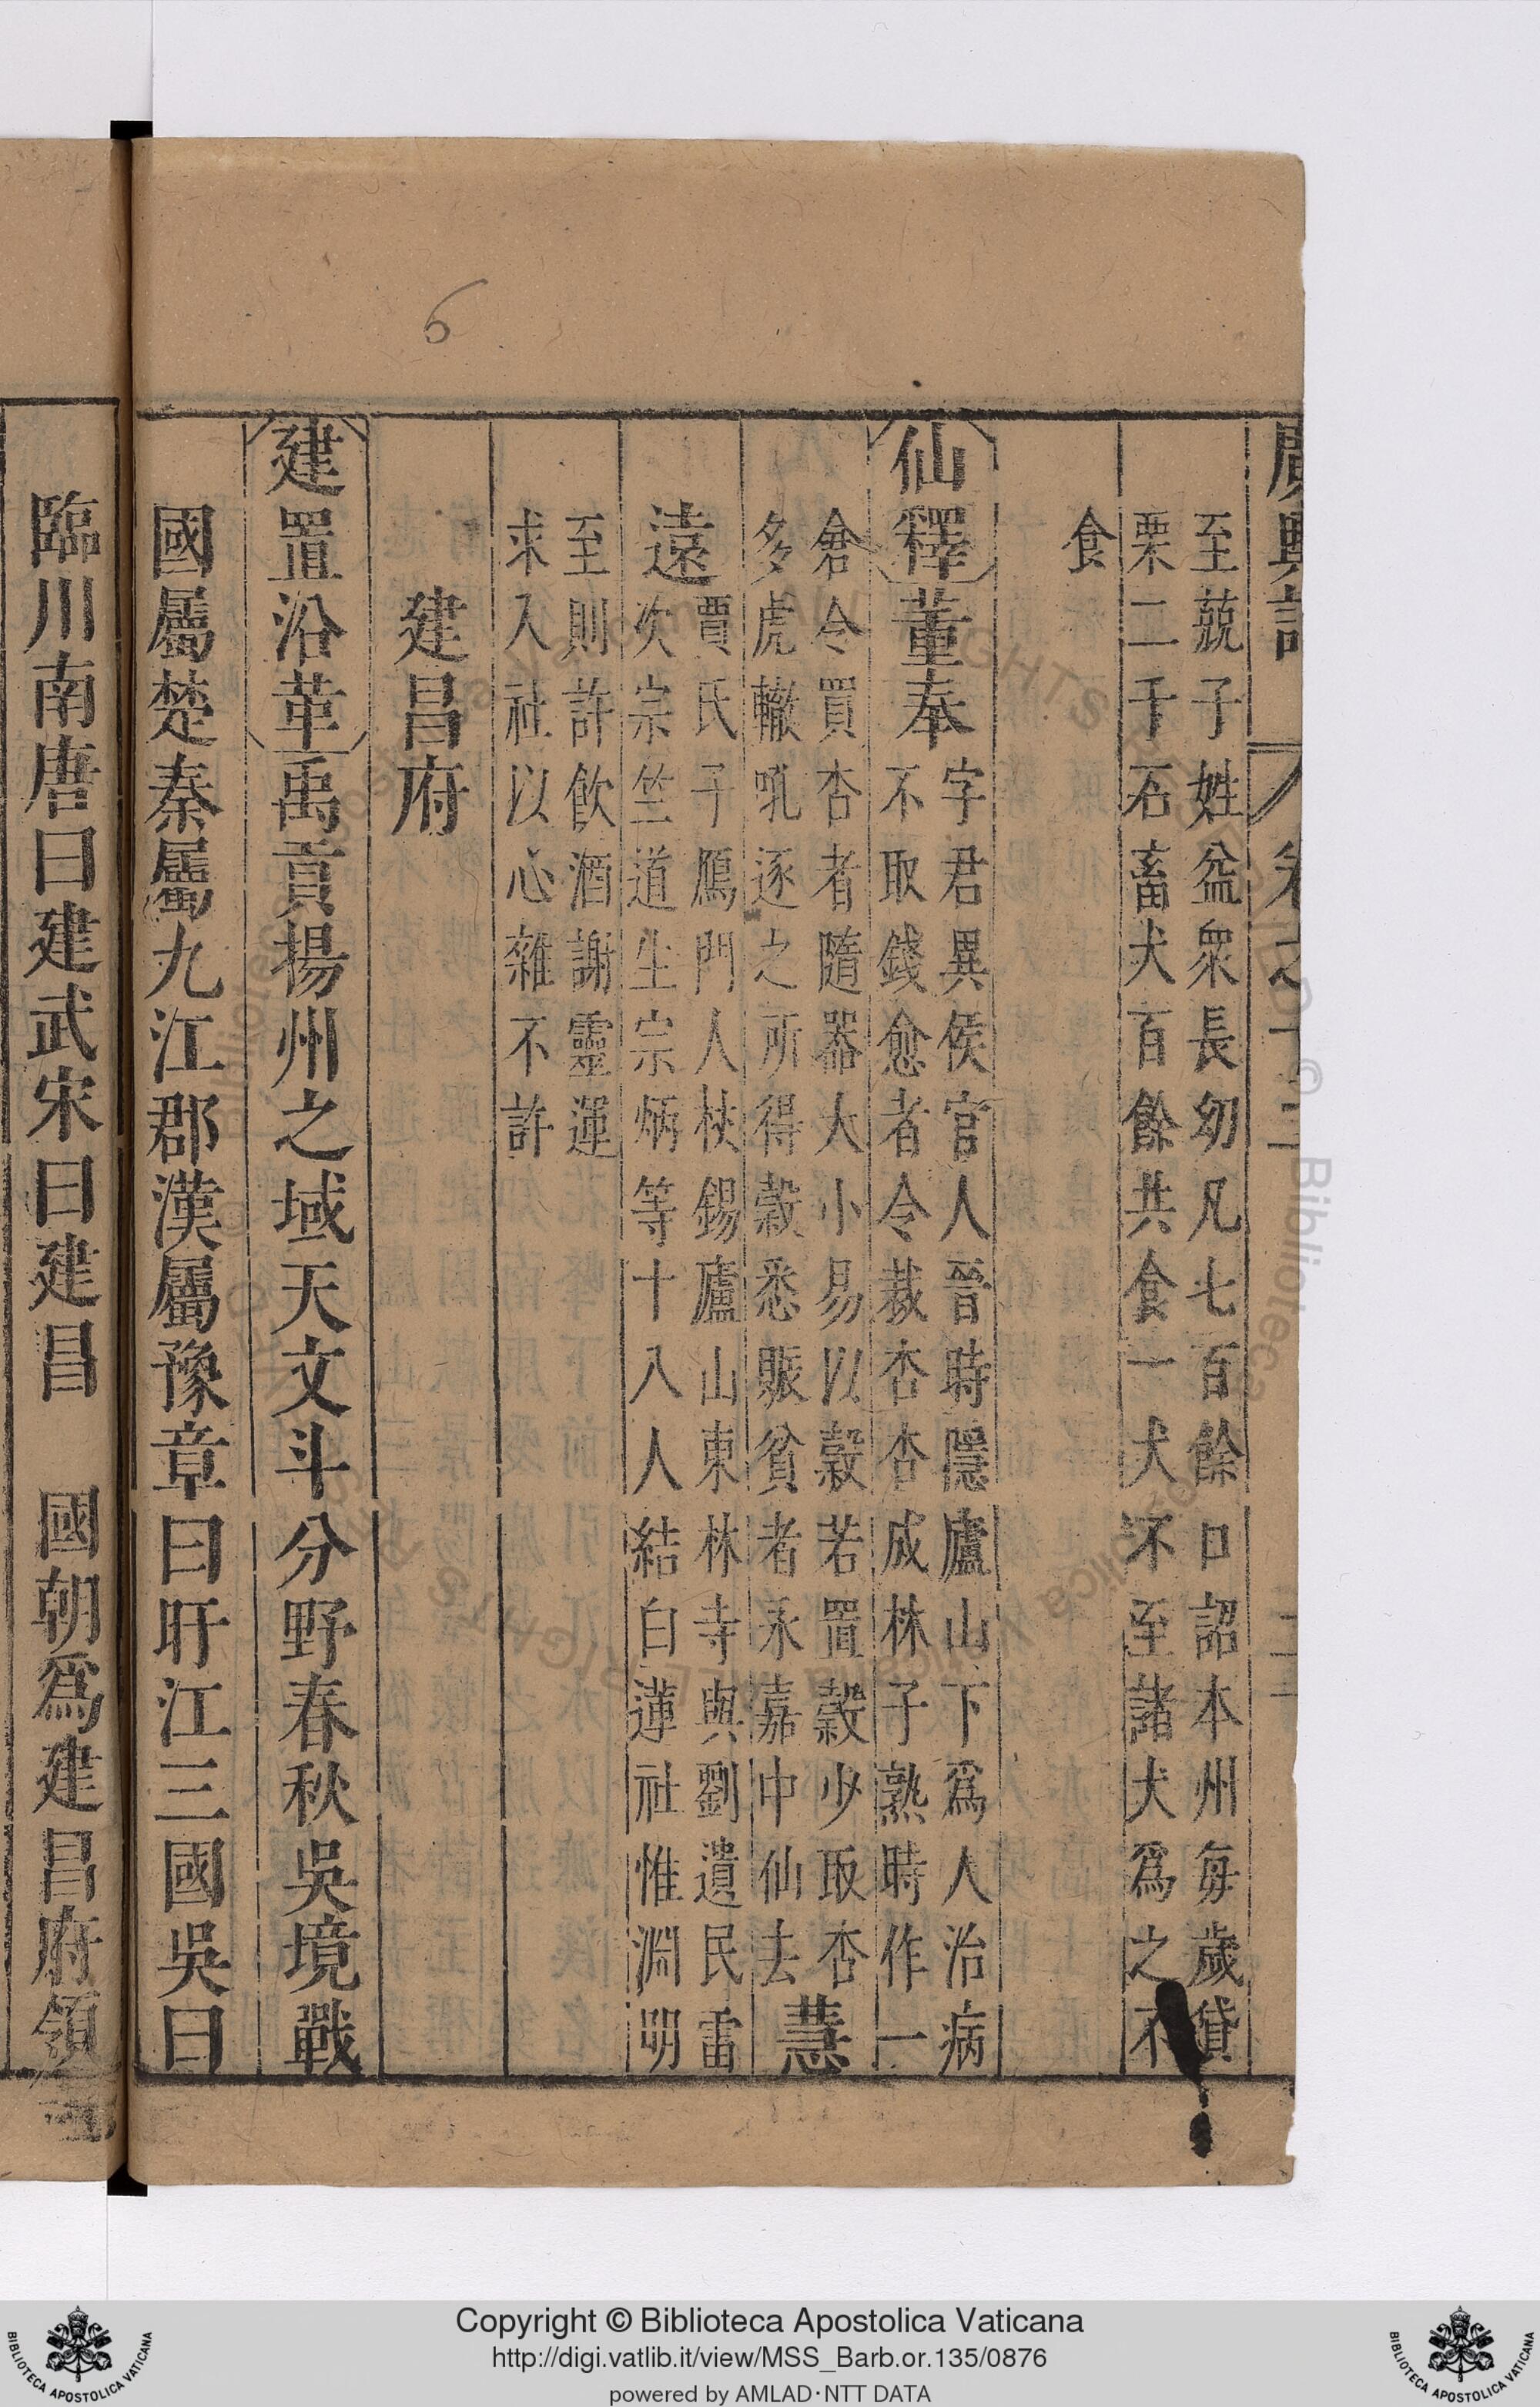 廣輿記 卷之十二
至兢子姓益衆長幼凡七百餘口詔本州每歲貸
粟二千石畜犬百餘共食一犬不至諸犬爲之不
食
仙釋董奉
字君異侯官人晉時隱廬山下爲人治病
不取錢愈者令栽杏杏成林子熟時作一
倉令買杏者隨器大小易以穀若置穀少取杏
多虎轍吼逐之所得穀悉賑貧者永嘉中仙去
慧
遠
賈氏子鴈門人杖錫廬山東林寺與劉遺民雷
次宗竺道生宗炳等十八人結白蓮社惟淵明
至則許飲酒謝靈運
求入社以心雜不許
建昌府
建置沿革禹貢揚州之域天文斗分野春秋吳境戰
國屬楚秦屬九江郡漢屬豫章曰旴江三國吳曰
臨川南唐曰建武宋曰建昌 國朝爲建昌府領
6
Copyright © Biblioteca Apostolica Vaticana
http://digi.vatlib.it/view/MSS_Barb.or.135/0876
powered by AMLAD·NTT DATA
BIBLIOTECA APOSTOLICA VATICANA
BIBLIOTECA APOSTOLICA VATICANA